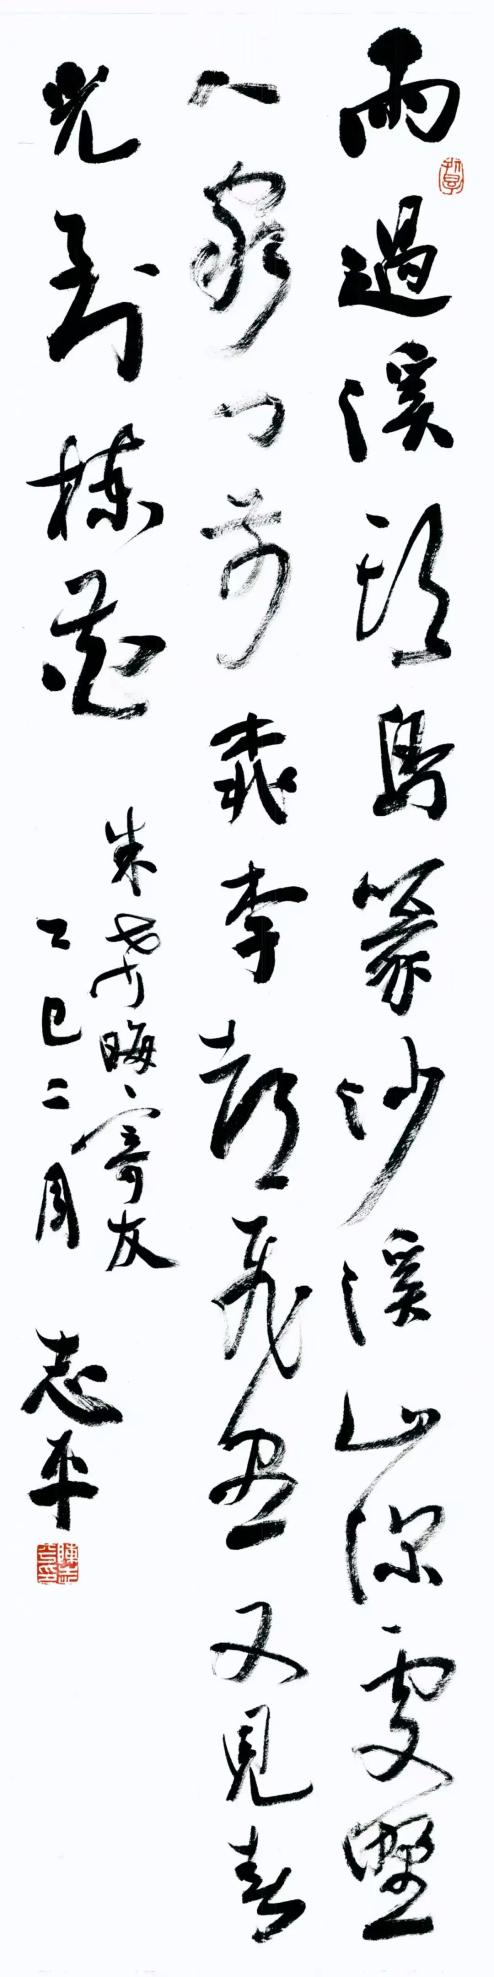 雨過溪頭鳥篆沙溪山深處野
人家門前桃李都飛盡又見春
光到楝花
朱希晦、寄友
乙巳二月 志平
陳志平印